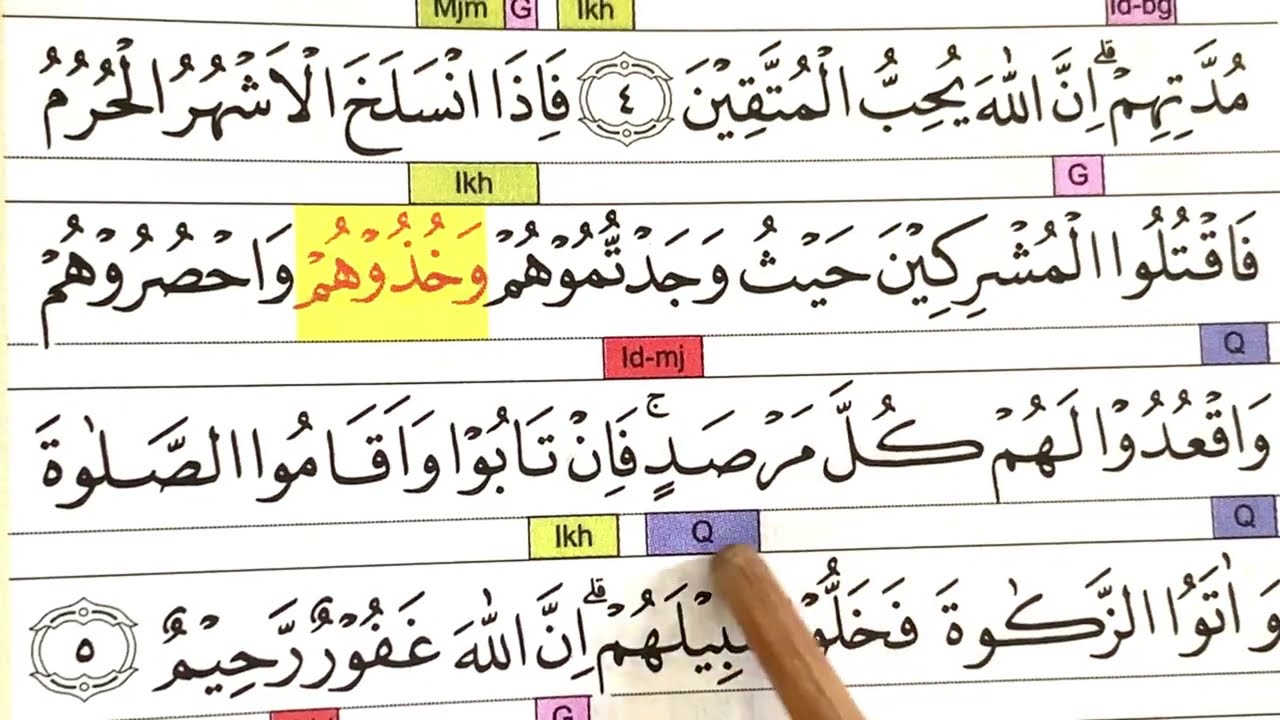 Mjm G Ikh Id-bg
مُدَّتِهِمْ ۗ اِنَّ اللّٰهَ يُحِبُّ الْمُتَّقِيْنَ ٤ فَاِذَا انْسَلَخَ الْاَشْهُرُ الْحُرُمُ
Ikh G
فَاقْتُلُوا الْمُشْرِكِيْنَ حَيْثُ وَجَدْتُّمُوْهُمْ وَخُذُوْهُمْ وَاحْصُرُوْهُمْ
Id-mj Q
وَاقْعُدُوْا لَهُمْ كُلَّ مَرْصَدٍ ۚ فَاِنْ تَابُوْا وَاَقَامُوا الصَّلٰوةَ
Ikh Q Q
وَاٰتَوُا الزَّكٰوةَ اِنَّ اللّٰهَ غَفُوْرٌ رَّحِيْمٌ ٥
G